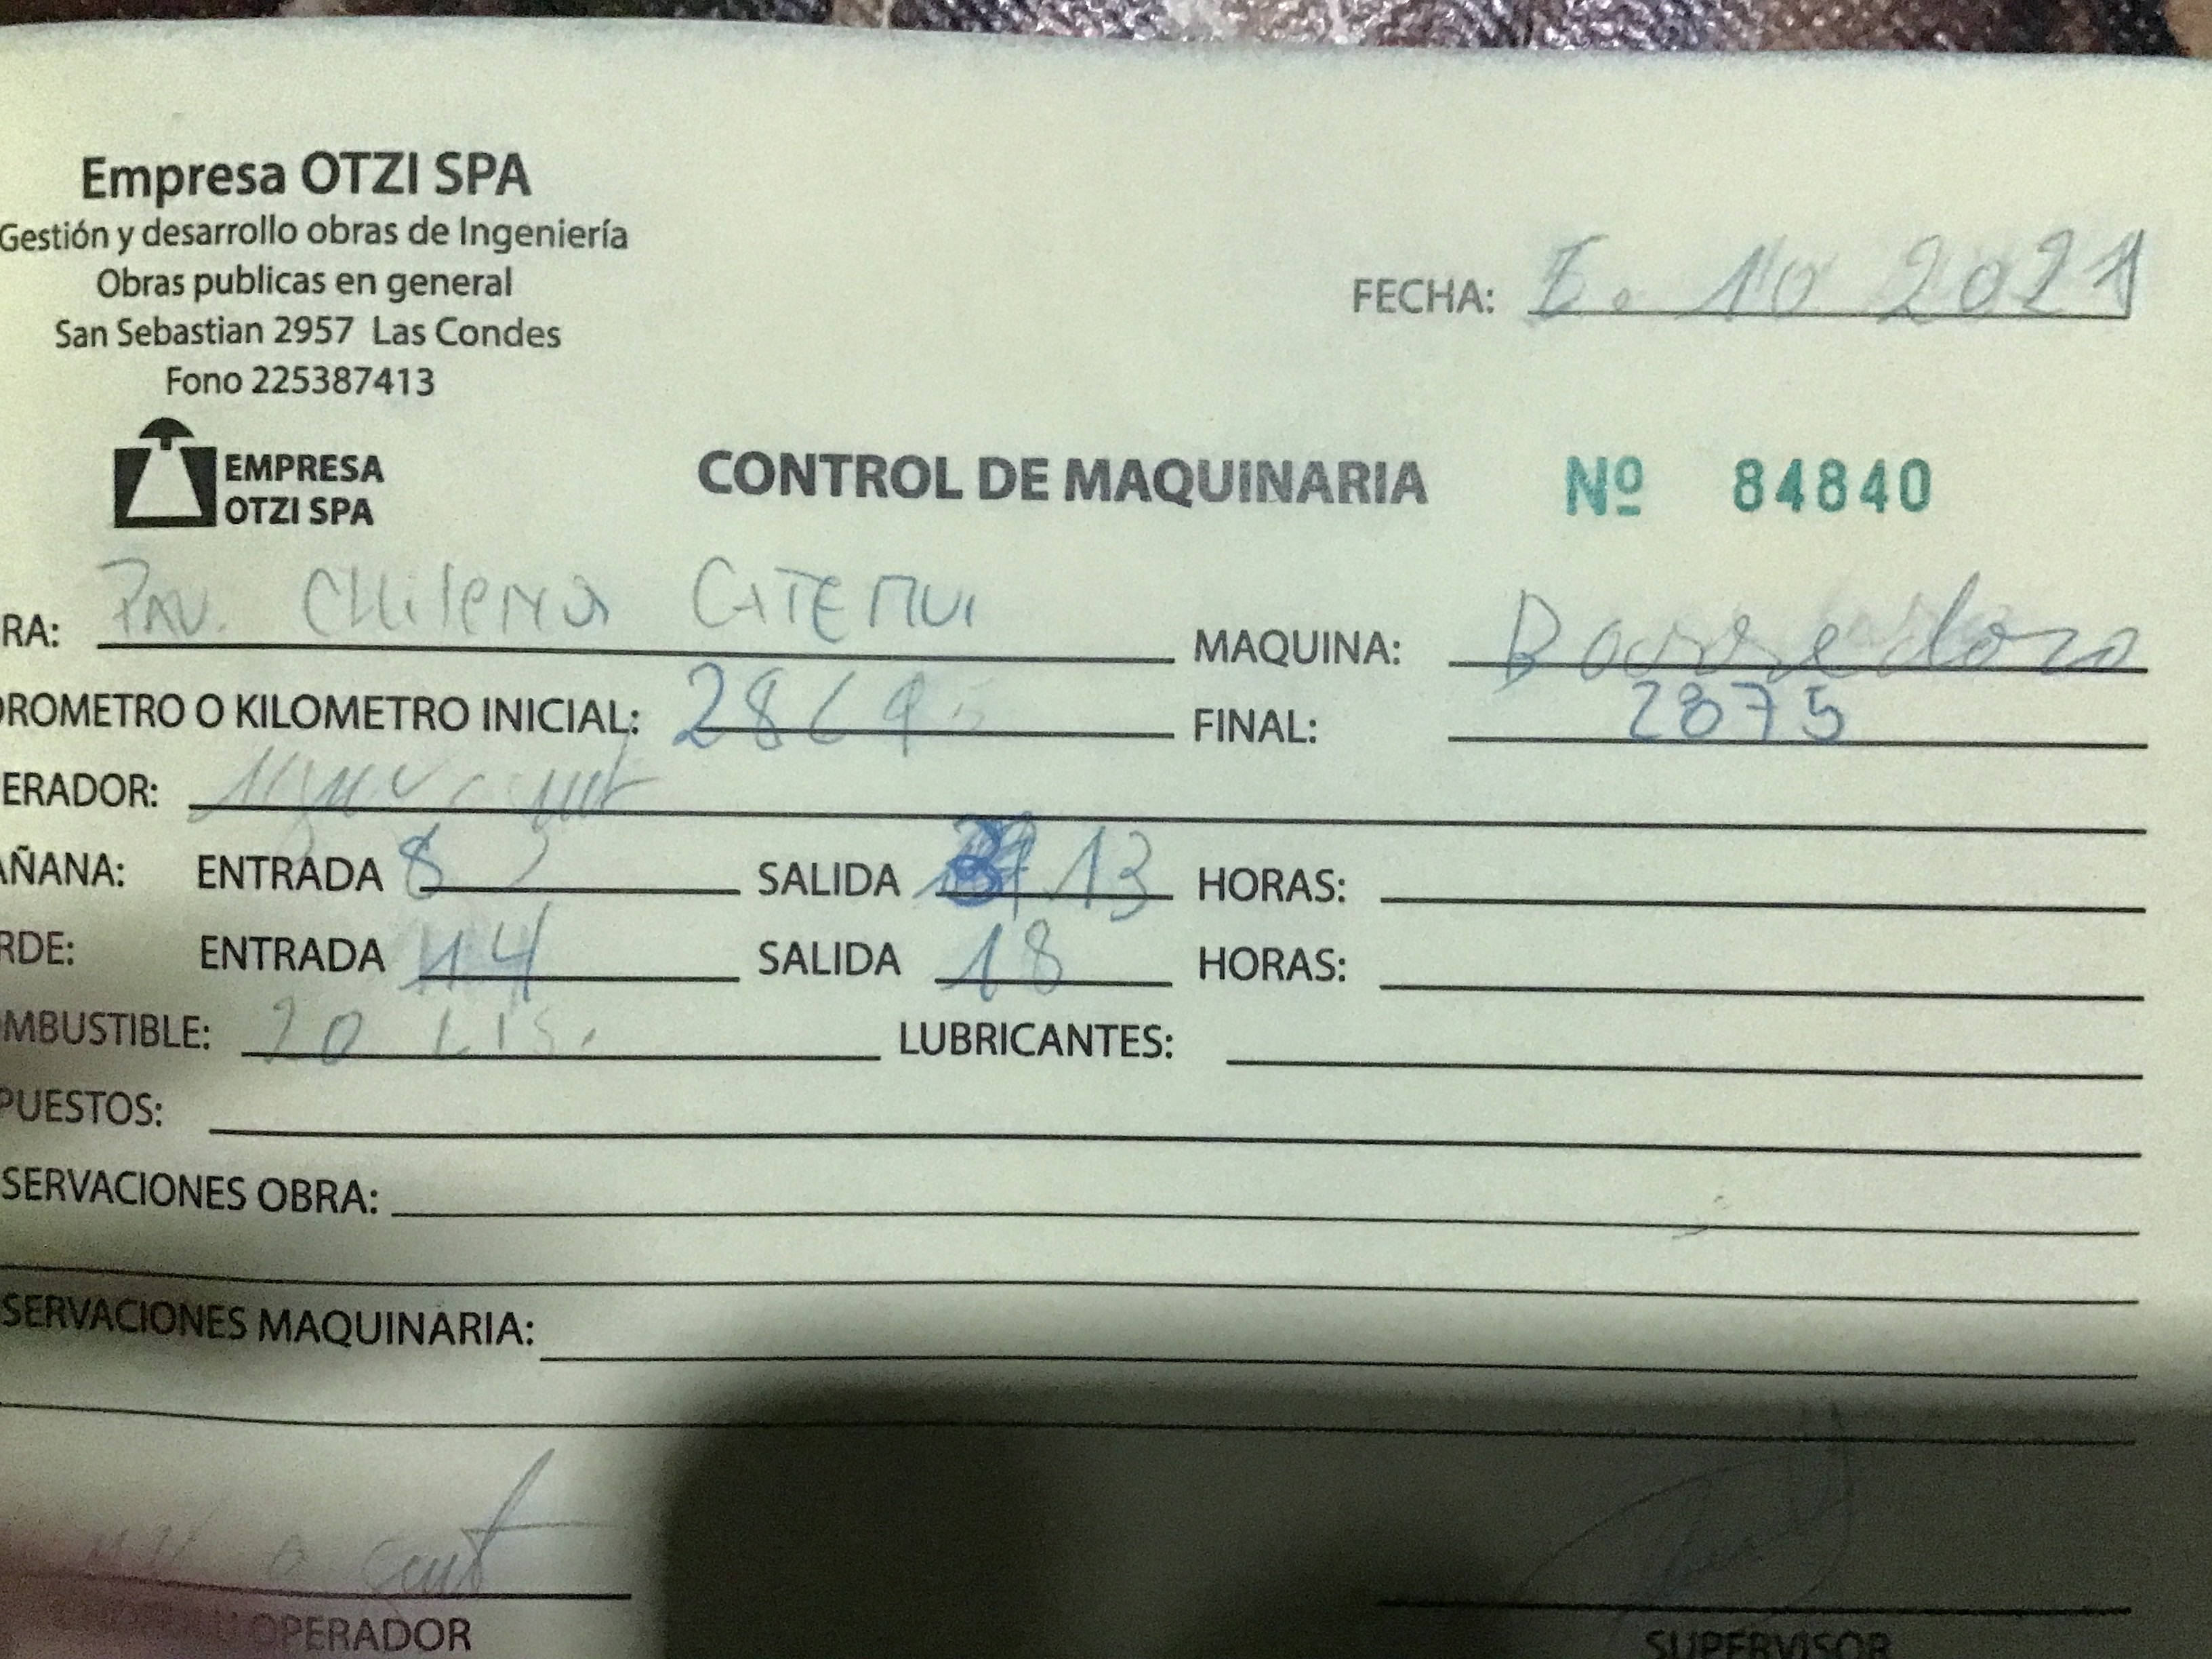 Empresa OTZI SPA
Gestión y desarrollo obras de Ingeniería
Obras publicas en general
San Sebastian 2957 Las Condes
Fono 225387413
FECHA: 10 2021
EMPRESA
OTZI SPA
CONTROL DE MAQUINARIA Nº 84840
RA: Chilena MAQUINA: Barredora
OROMETRO O KILOMETRO INICIAL: FINAL: 2875
ERADOR:
AÑANA: ENTRADA 8 SALIDA 13 HORAS:
RDE: ENTRADA 14 SALIDA 18 HORAS:
OMBUSTIBLE: 20 LUBRICANTES:
PUESTOS:
SERVACIONES OBRA:
SERVACIONES MAQUINARIA:
OPERADOR
SUPERVISOR